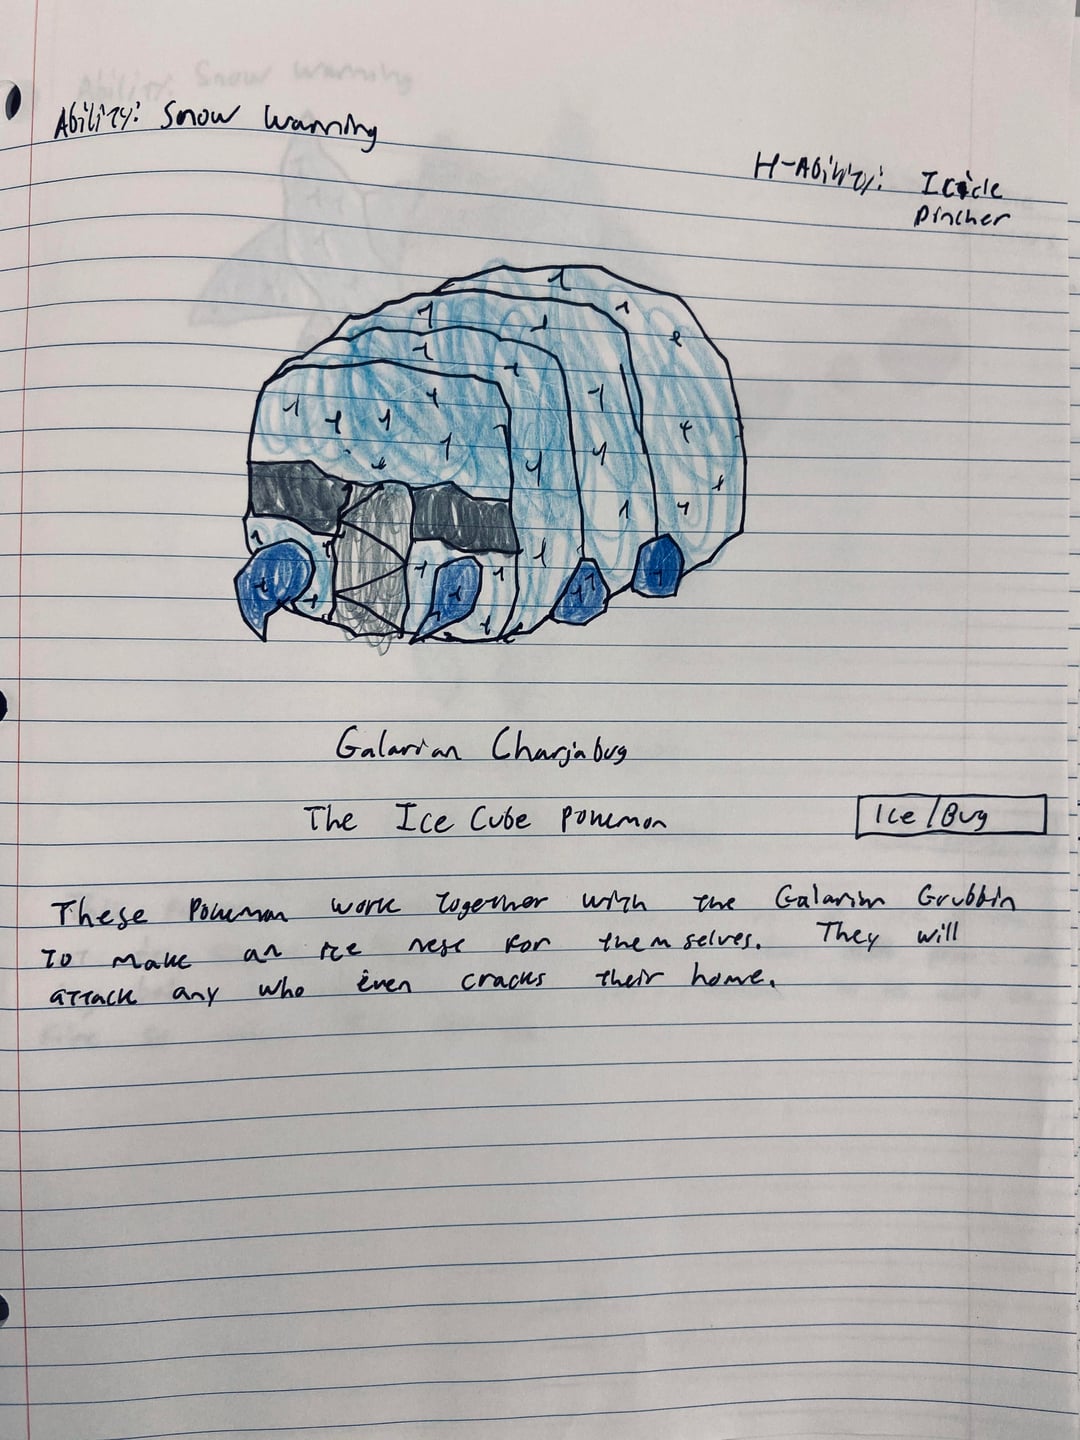 Ability: Snow Warning
H-Ability: Icicle
Pincher
Galarian Charjabug
The Ice Cube Pokemon
Ice/Bug
These Pokemon work together with the Galarian Grubbin
to make an ice nest for themselves. They will
attack any who even cracks their home.